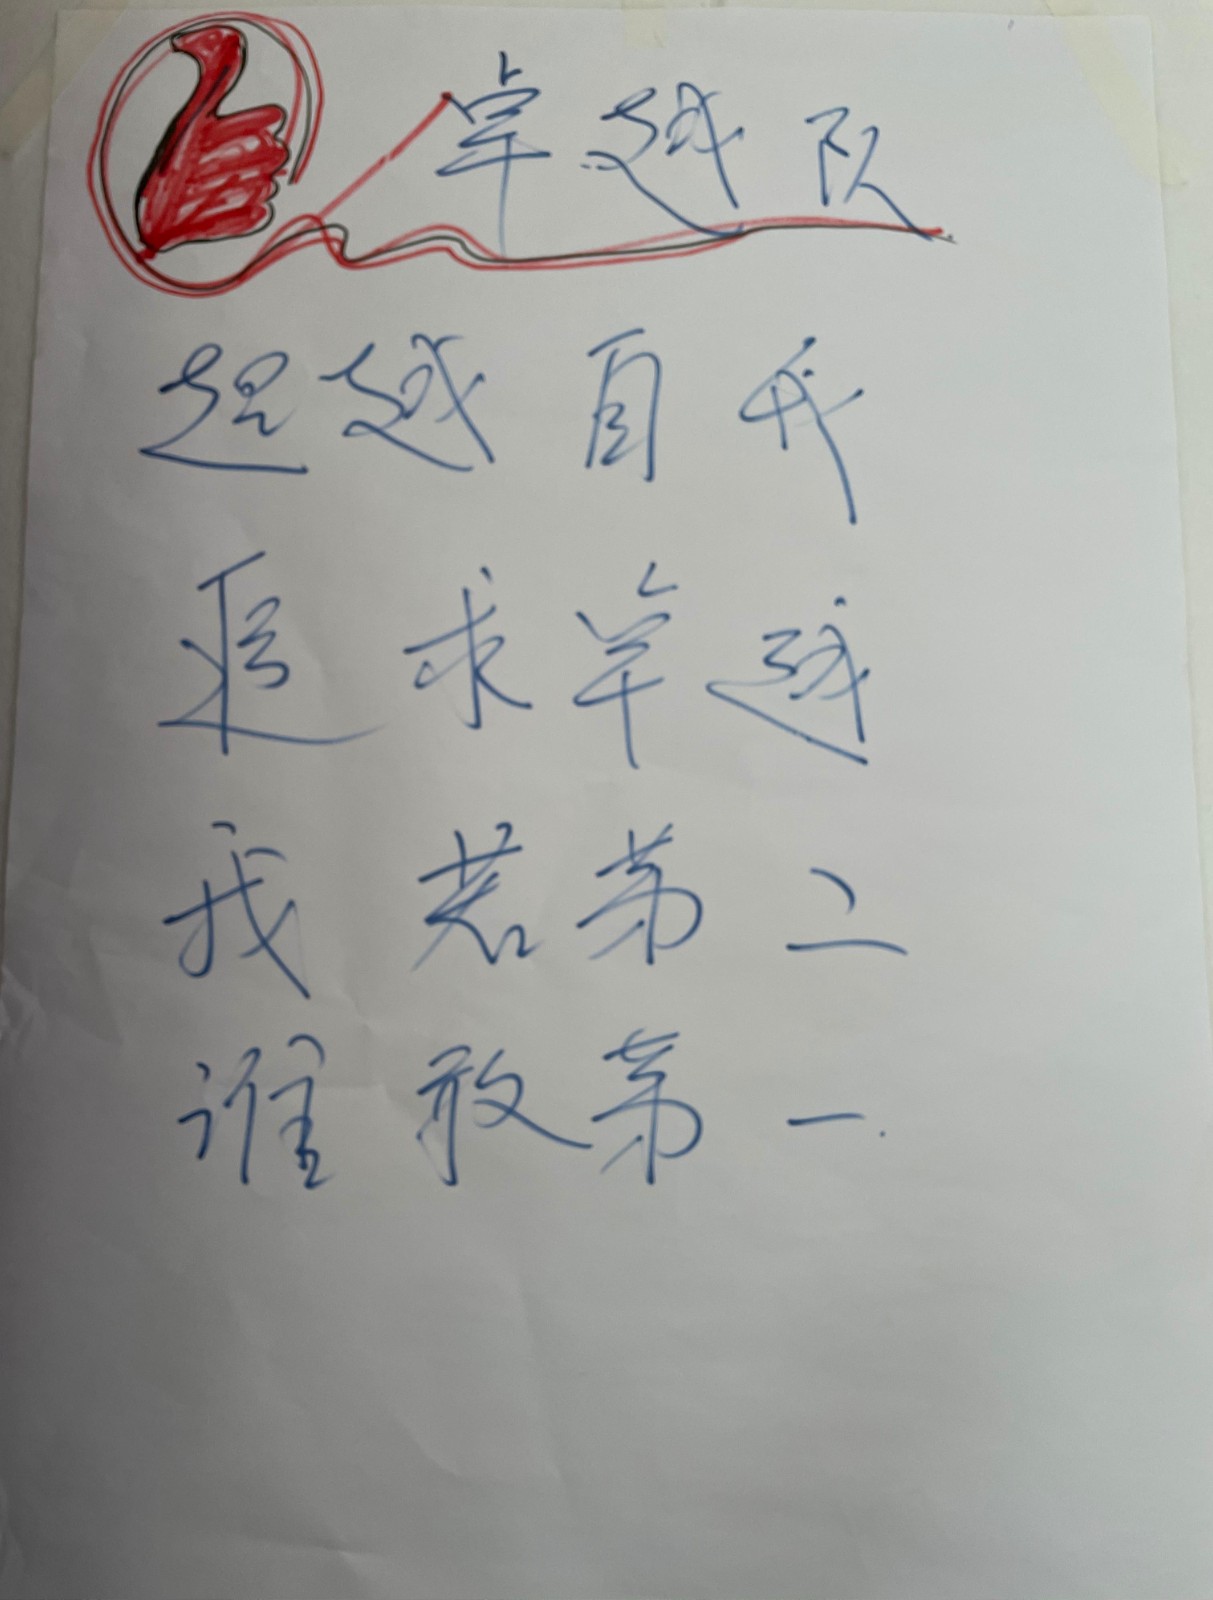 卓越队
超越自我
追求卓越
我若第二
谁敢第一.